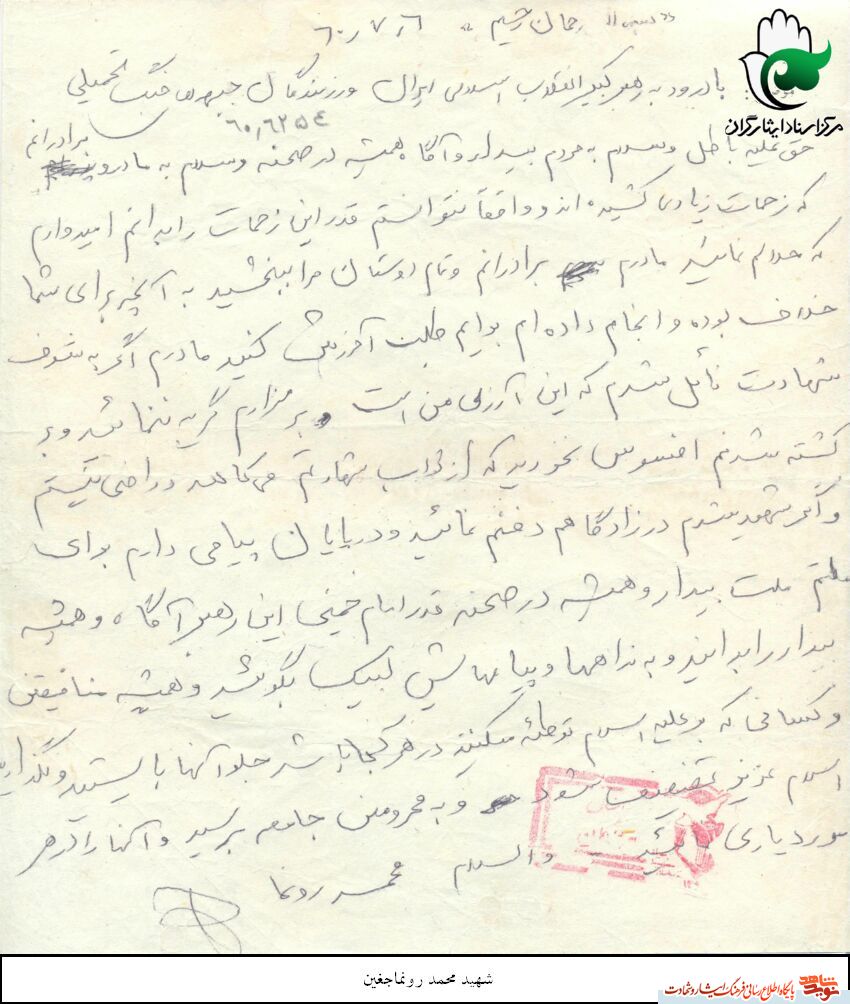 بسم الله رحمان رحیم ۶۰/۷/۶
با درود به رهبر کبیر انقلاب اسلامی ایران و رزمندگان جبهه های جنگ تحمیلی
۶۰٫۶۲۵۴
حق علیه باطل و سلام به مردم بیدار و آگاه همیشه در صحنه و سلام به مادر و برادرانم
که زحمات زیادی کشیده اند و واقعاً نتوانستم قدر این زحمات را بدانم امیدوارم
که حلالم نمائید مادرم برادرانم و تمام دوستان مرا ببخشید به آنچه برای شما
خلاف بوده و انجام داده ام برایم طلب آمرزش کنید مادرم اگر به شرف
شهادت نائل شدم که این آرزوی من است بر مزارم گریه ننمائید و بر
کشته شدنم افسوس نخورید که از ثواب شهادتم می کاهد و راضی نیستم
و اگر شهید شدم در زادگاهم دفنم نمائید و در پایان پیامی دارم برای
ملتم ملت بیدار و همیشه در صحنه قدر امام خمینی این رهبر آگاه و همیشه
بیدار را بدانید و به نداهها و پیامهایش لبیک بگوئید و همیشه منافیقین
و کسانی که بر علیه اسلام توطئه میکنند در هر کجا باشد جلو آنها بایستید و نگذارید
اسلام عزیز تضعیف شود و به محرومین جامعه برسید و آنها را در هر
مورد یاری والسلام محمد رونما
مرکز اسناد ایثارگران
شهید محمد رونماجغین
نوید شاهد
پایگاه اطلاع رسانی فرهنگ ایثار و شهادت